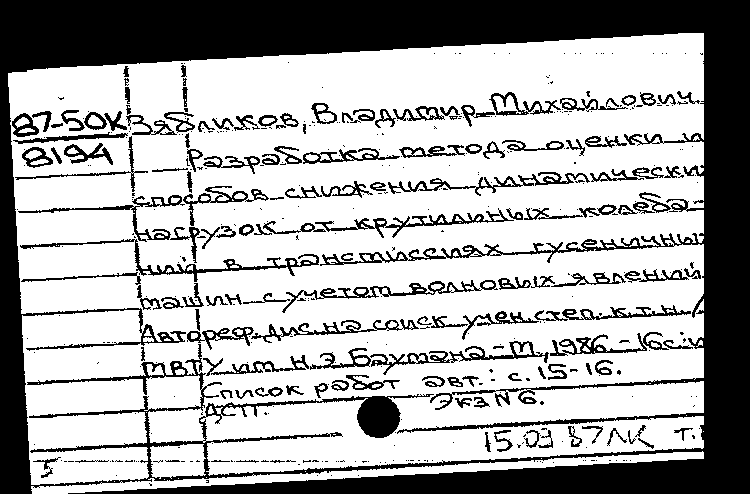 87-50К Зябликов, Владимир Михайлович.
8194 Разработка метода оценки и
способов снижения динамических
нагрузок от крутильных колеба-
ний в трансмиссиях гусеничных
машин с учетом волновых явлений.
Автореф. дис. на соиск учен. степ. к.т.н. /
МВТУ им. Н.Э. Баумана. - М., 1986. - 16с.: и
Список работ авт.: с. 15-16.
ДСП. Экз N 6.
15.03 87 ЛК т.
5